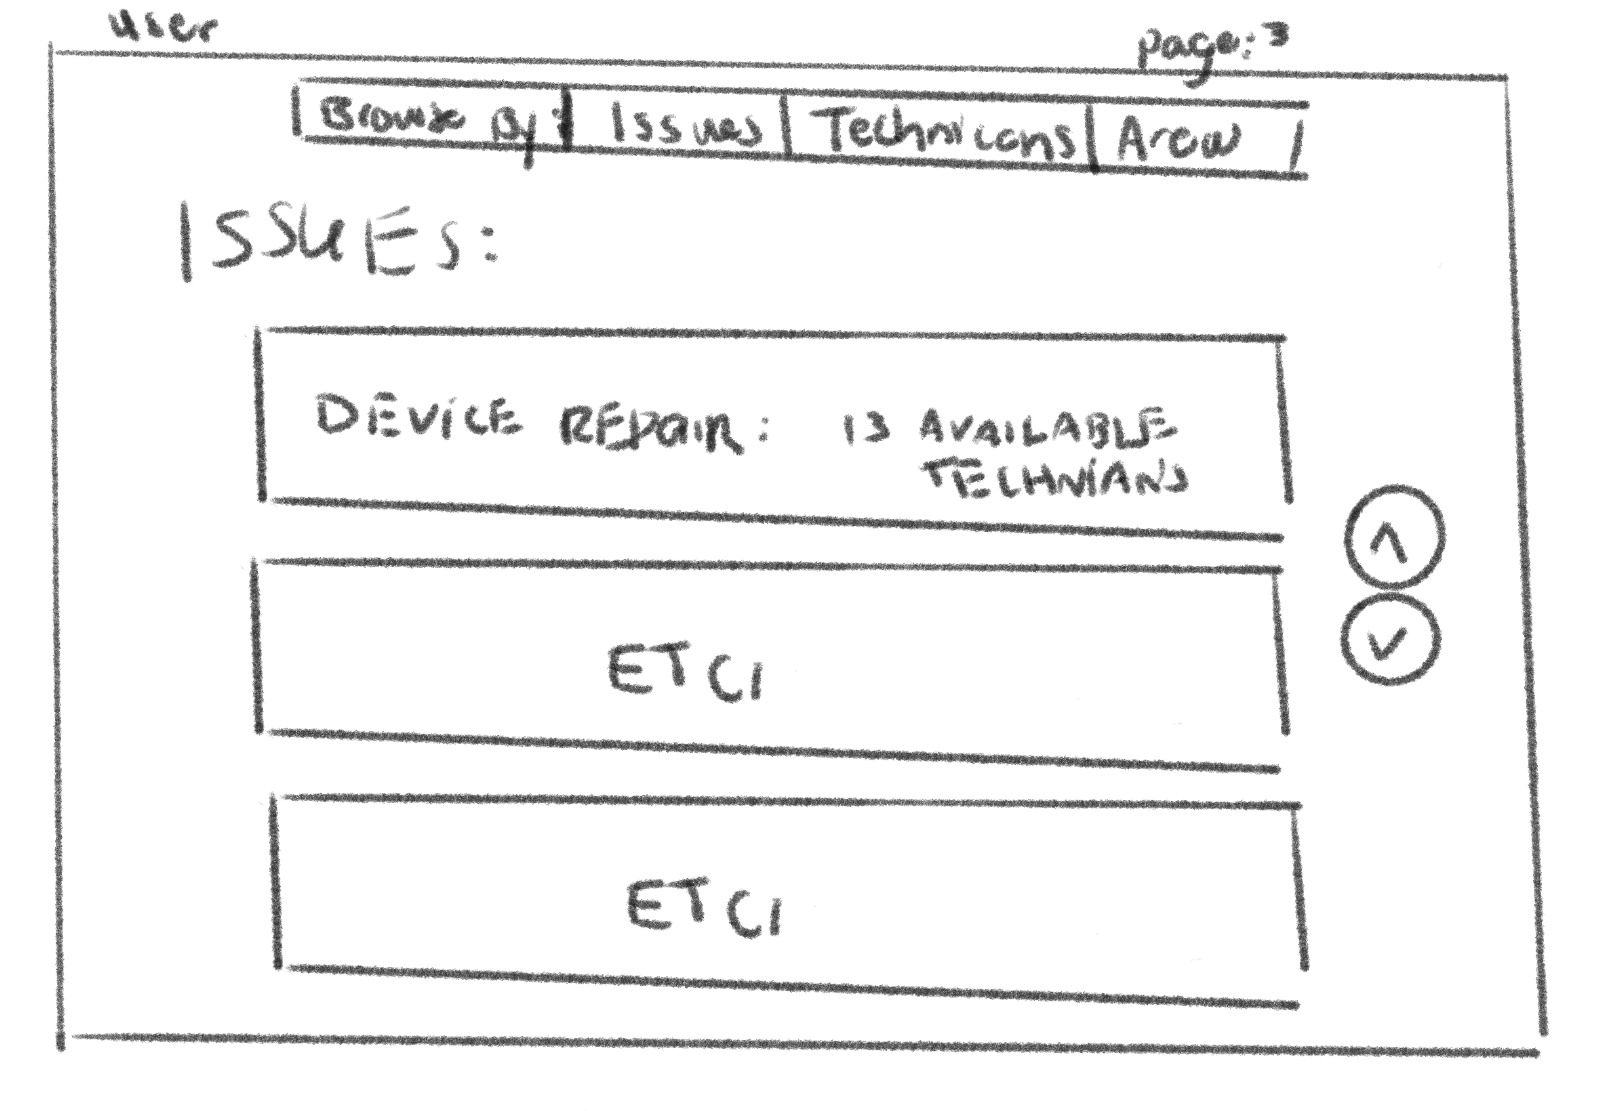 user
page: 3
Browse By: Issues Technicans Area
ISSUES:
DEVICE REPAIR: 13 AVAILABLE
TECHNIANS
ETC,
ETC,